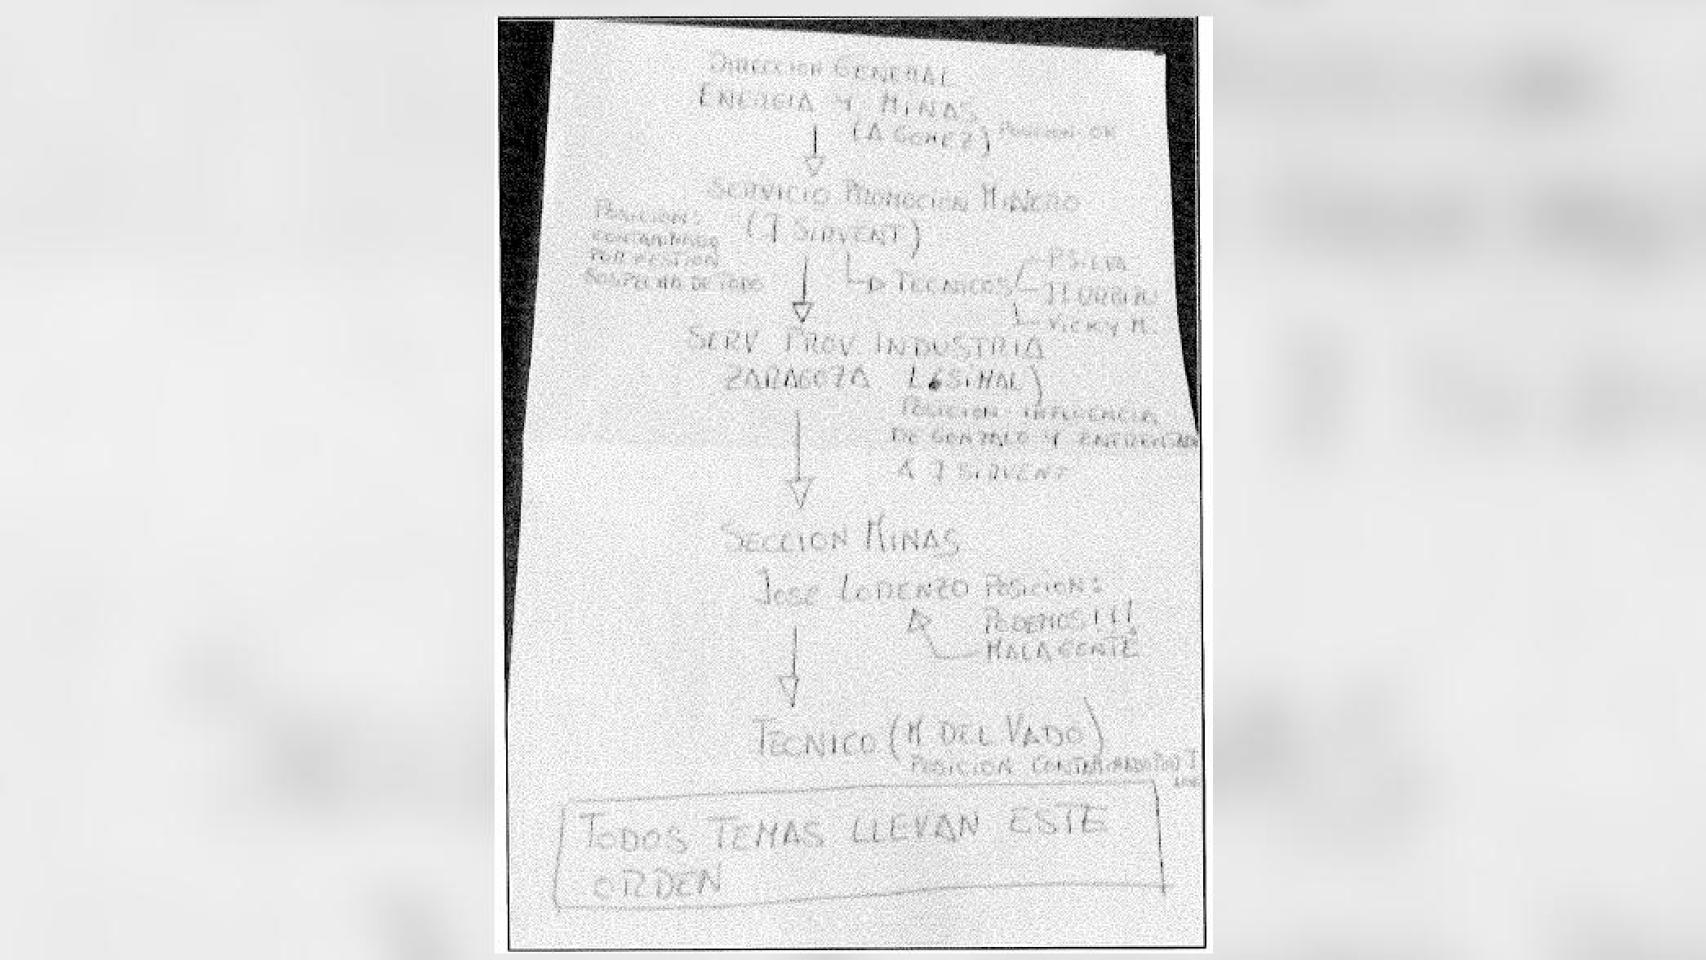 DIRECCION GENERAL
ENERGIA Y MINAS
(A GOMEZ) POSICION OK
SERVICIO PROMOCION MINERO
(J SIRVENT)
POSICION:
CONTAMINADO
POR GESTION
SOSPECHA DE TODO
TECNICOS
P. SILVA
VICKY M.
SERV PROV. INDUSTRIA
ZARAGOZA L SIMAL)
POSICION INFLUENCIA
DE GONZALO Y
A J SIRVENT
SECCION MINAS
JOSE LORENZO POSICION:
PODEMOS!!!
MALA GENTE
TECNICO (M DEL VADO)
POSICION
TODOS TEMAS LLEVAN ESTE
ORDEN